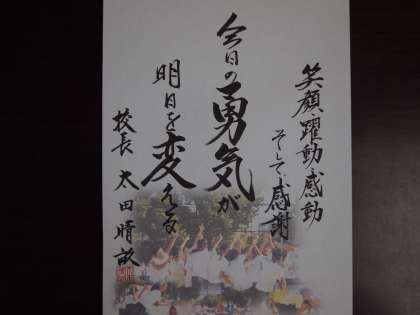 笑顔・躍動・感動
そして感謝
今日の勇気が
明日を変える
校長 太田晴敏